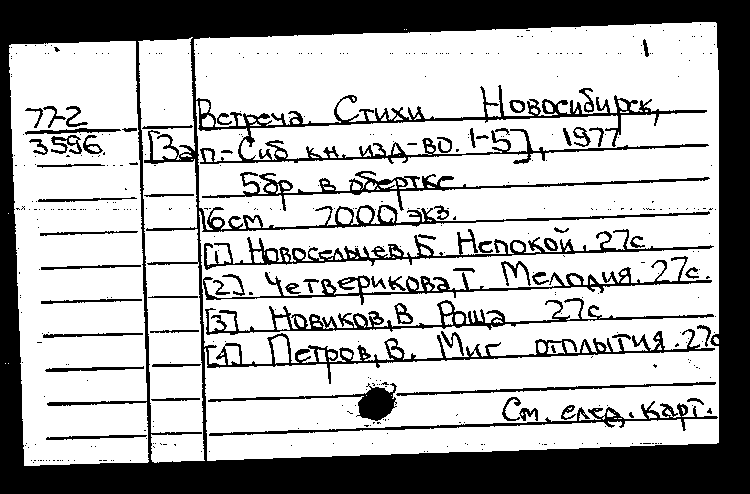 1
77-2
3596
Встреча. Стихи. Новосибирск,
[Зап.-Сиб. кн. изд-во. 1-5], 1977.
5бр. в обертке.
16см. 7000 экз.
[1]. Новосельцев, Б. Непокой. 27с.
[2]. Четверикова, Т. Мелодия. 27с.
[3]. Новиков, В. Роща. 27с.
[4]. Петров, В. Миг отплытия. 27с
См. след. карт.